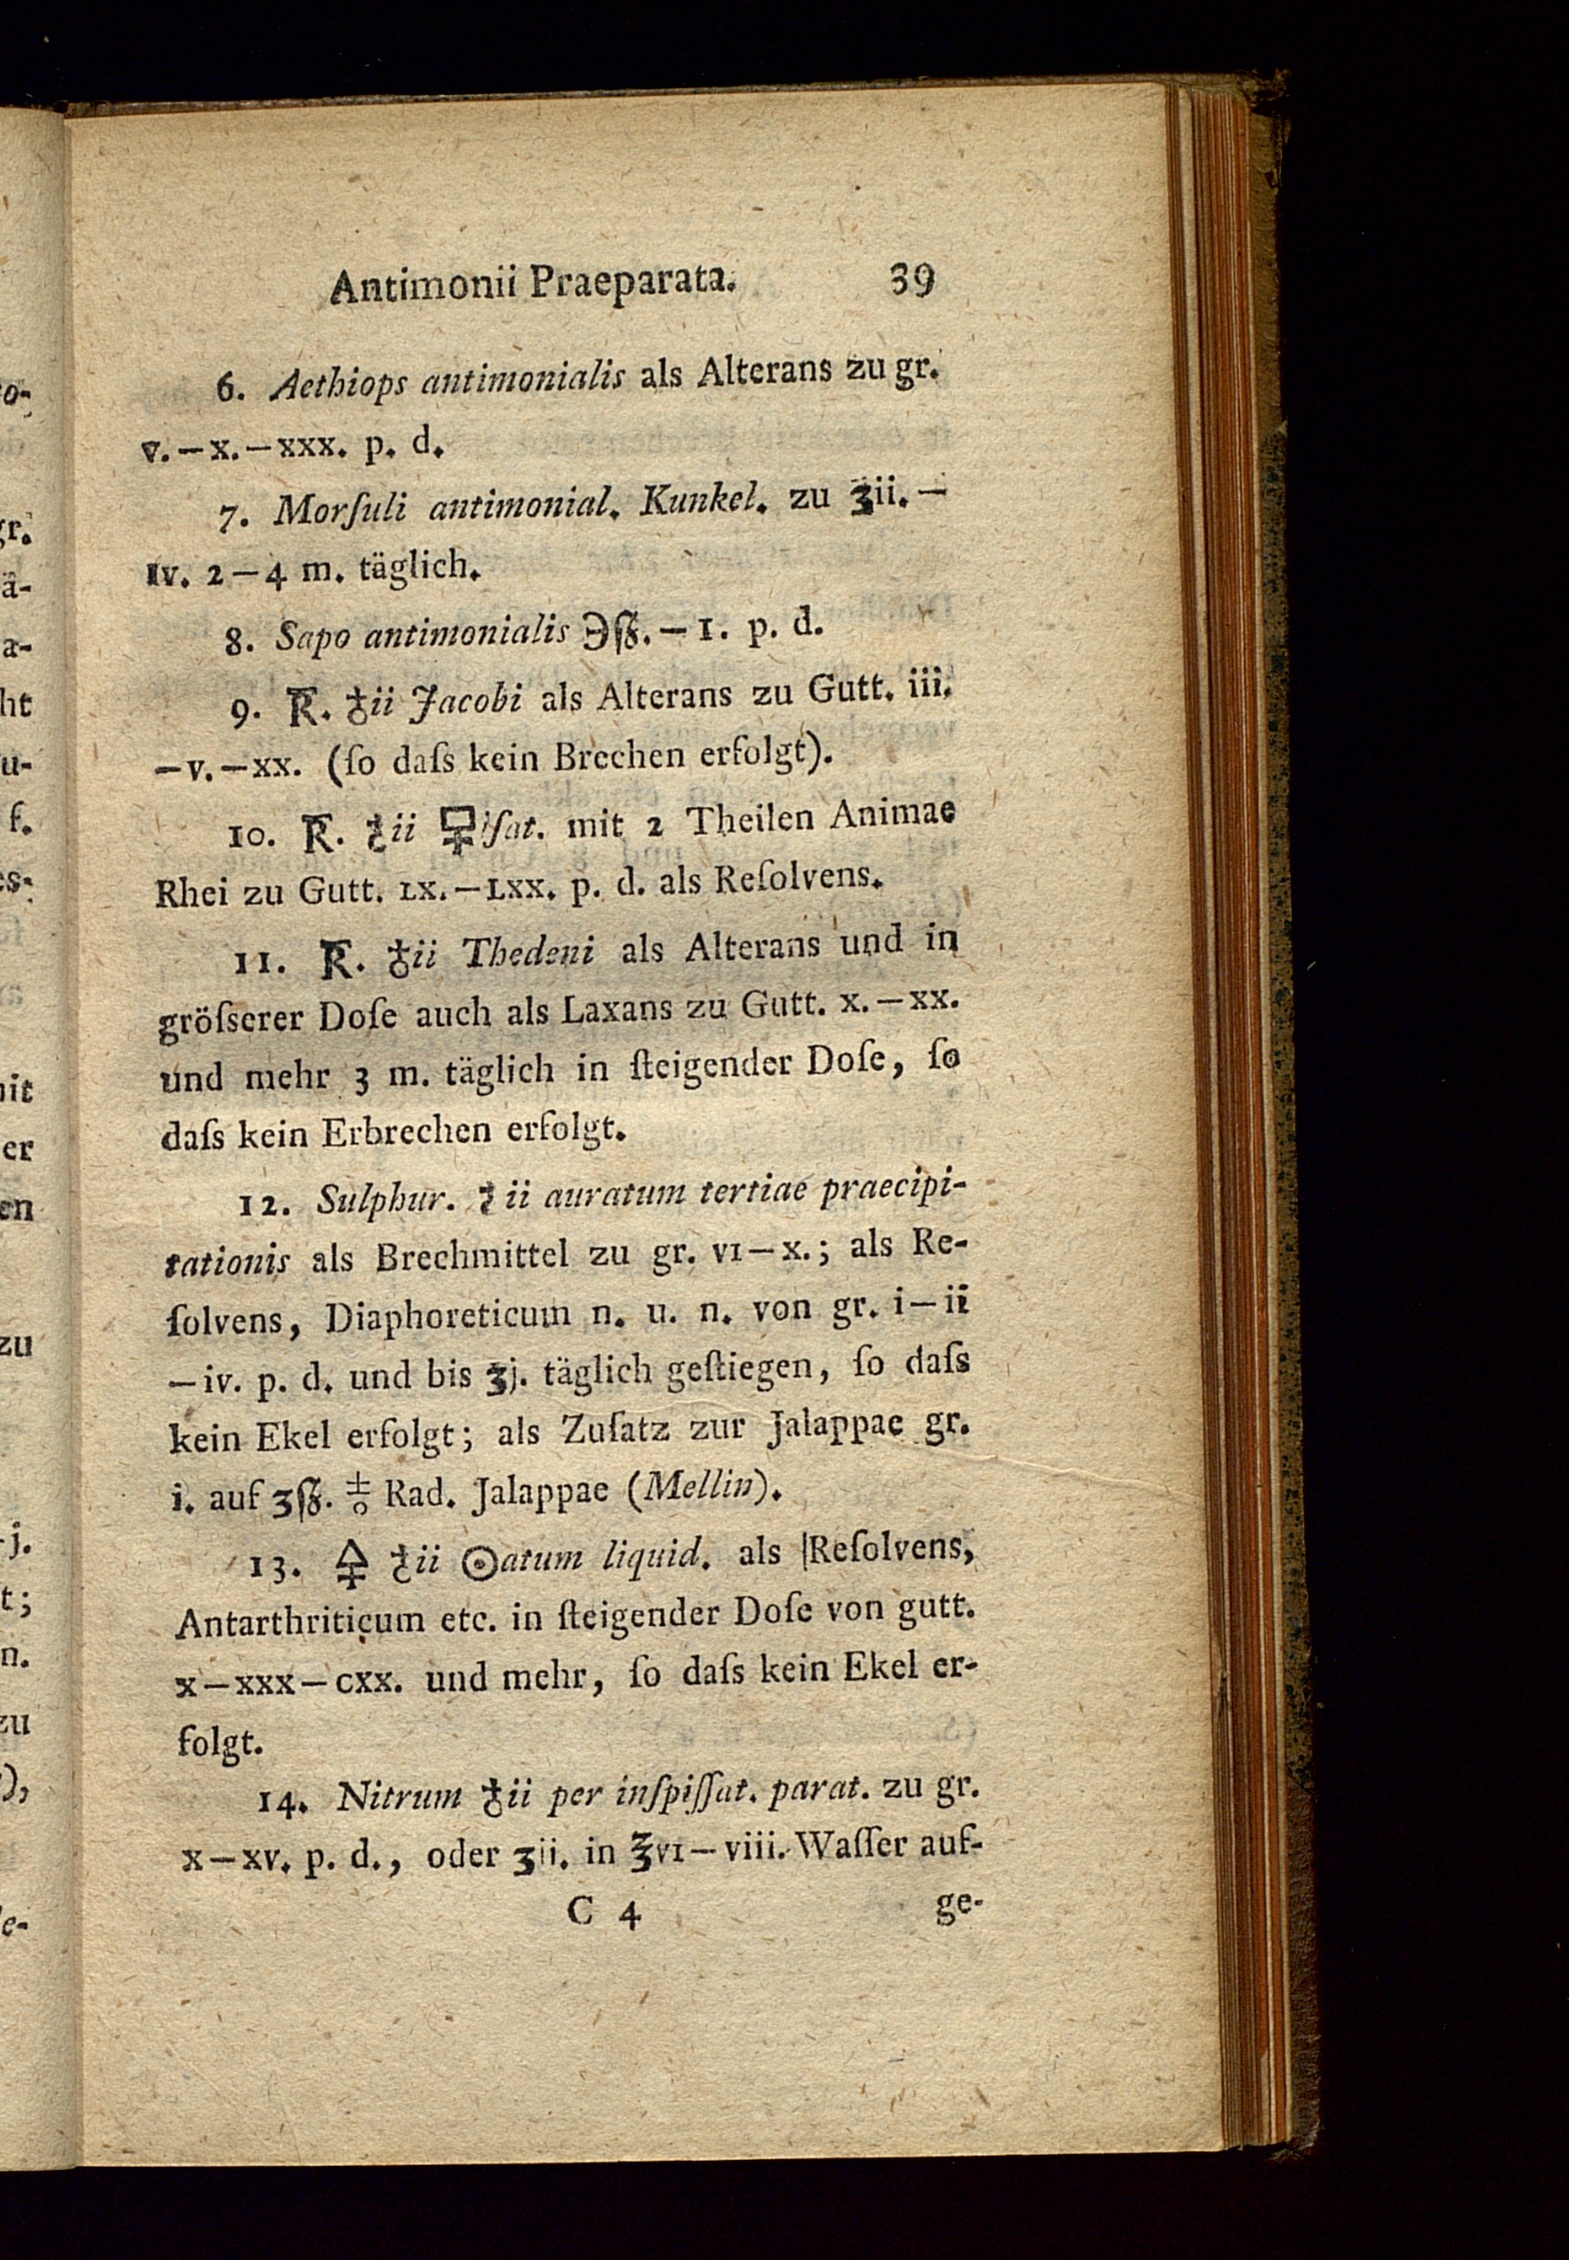 Antimonii Praeparata. 39
6. Aethiops antimonialis als Alterans zu gr.
v.—x.—xxx. p. d.
7. Morſuli antimonial. Kunkel. zu ʒii.—
Iv. 2—4 m. täglich.
8. Sapo antimonialis ℈ſʒ.—I. p. d.
9. R. ♁ii Jacobi als Alterans zu Gutt. iii.
—v.—xx. (ſo daſs kein Brechen erfolgt).
10. R. ♁ii iſat. mit 2 Theilen Animae
Rhei zu Gutt. Lx.—Lxx. p. d. als Reſolvens.
11. R. ♁ii Thedeni als Alterans und in
gröſserer Doſe auch als Laxans zu Gutt. x.—xx.
und mehr 3 m. täglich in ſteigender Doſe, ſo
daſs kein Erbrechen erfolgt.
12. Sulphur. ♁ii auratum tertiae praecipi-
tationis als Brechmittel zu gr. vI—x.; als Re-
ſolvens, Diaphoreticum n. u. n. von gr. i—ii
—iv. p. d. und bis ʒj. täglich geſtiegen, ſo daſs
kein Ekel erfolgt; als Zuſatz zur Jalappae gr.
i. auf ʒſʒ. Rad. Jalappae (Mellin).
13. 🜍 ♁ii ☉atum liquid. als Reſolvens,
Antarthriticum etc. in ſteigender Doſe von gutt.
x—xxx—cxx. und mehr, ſo daſs kein Ekel er-
folgt.
14. Nitrum ♁ii per inſpiſſat. parat. zu gr.
x—xv. p. d., oder ʒii. in ℥vI—viii. Waſſer auf-
C 4 ge-
o-
gr.
ä-
a-
ht
u-
f.
es-
it
er
en
zu
j.
t;
n.
zu
),
e-